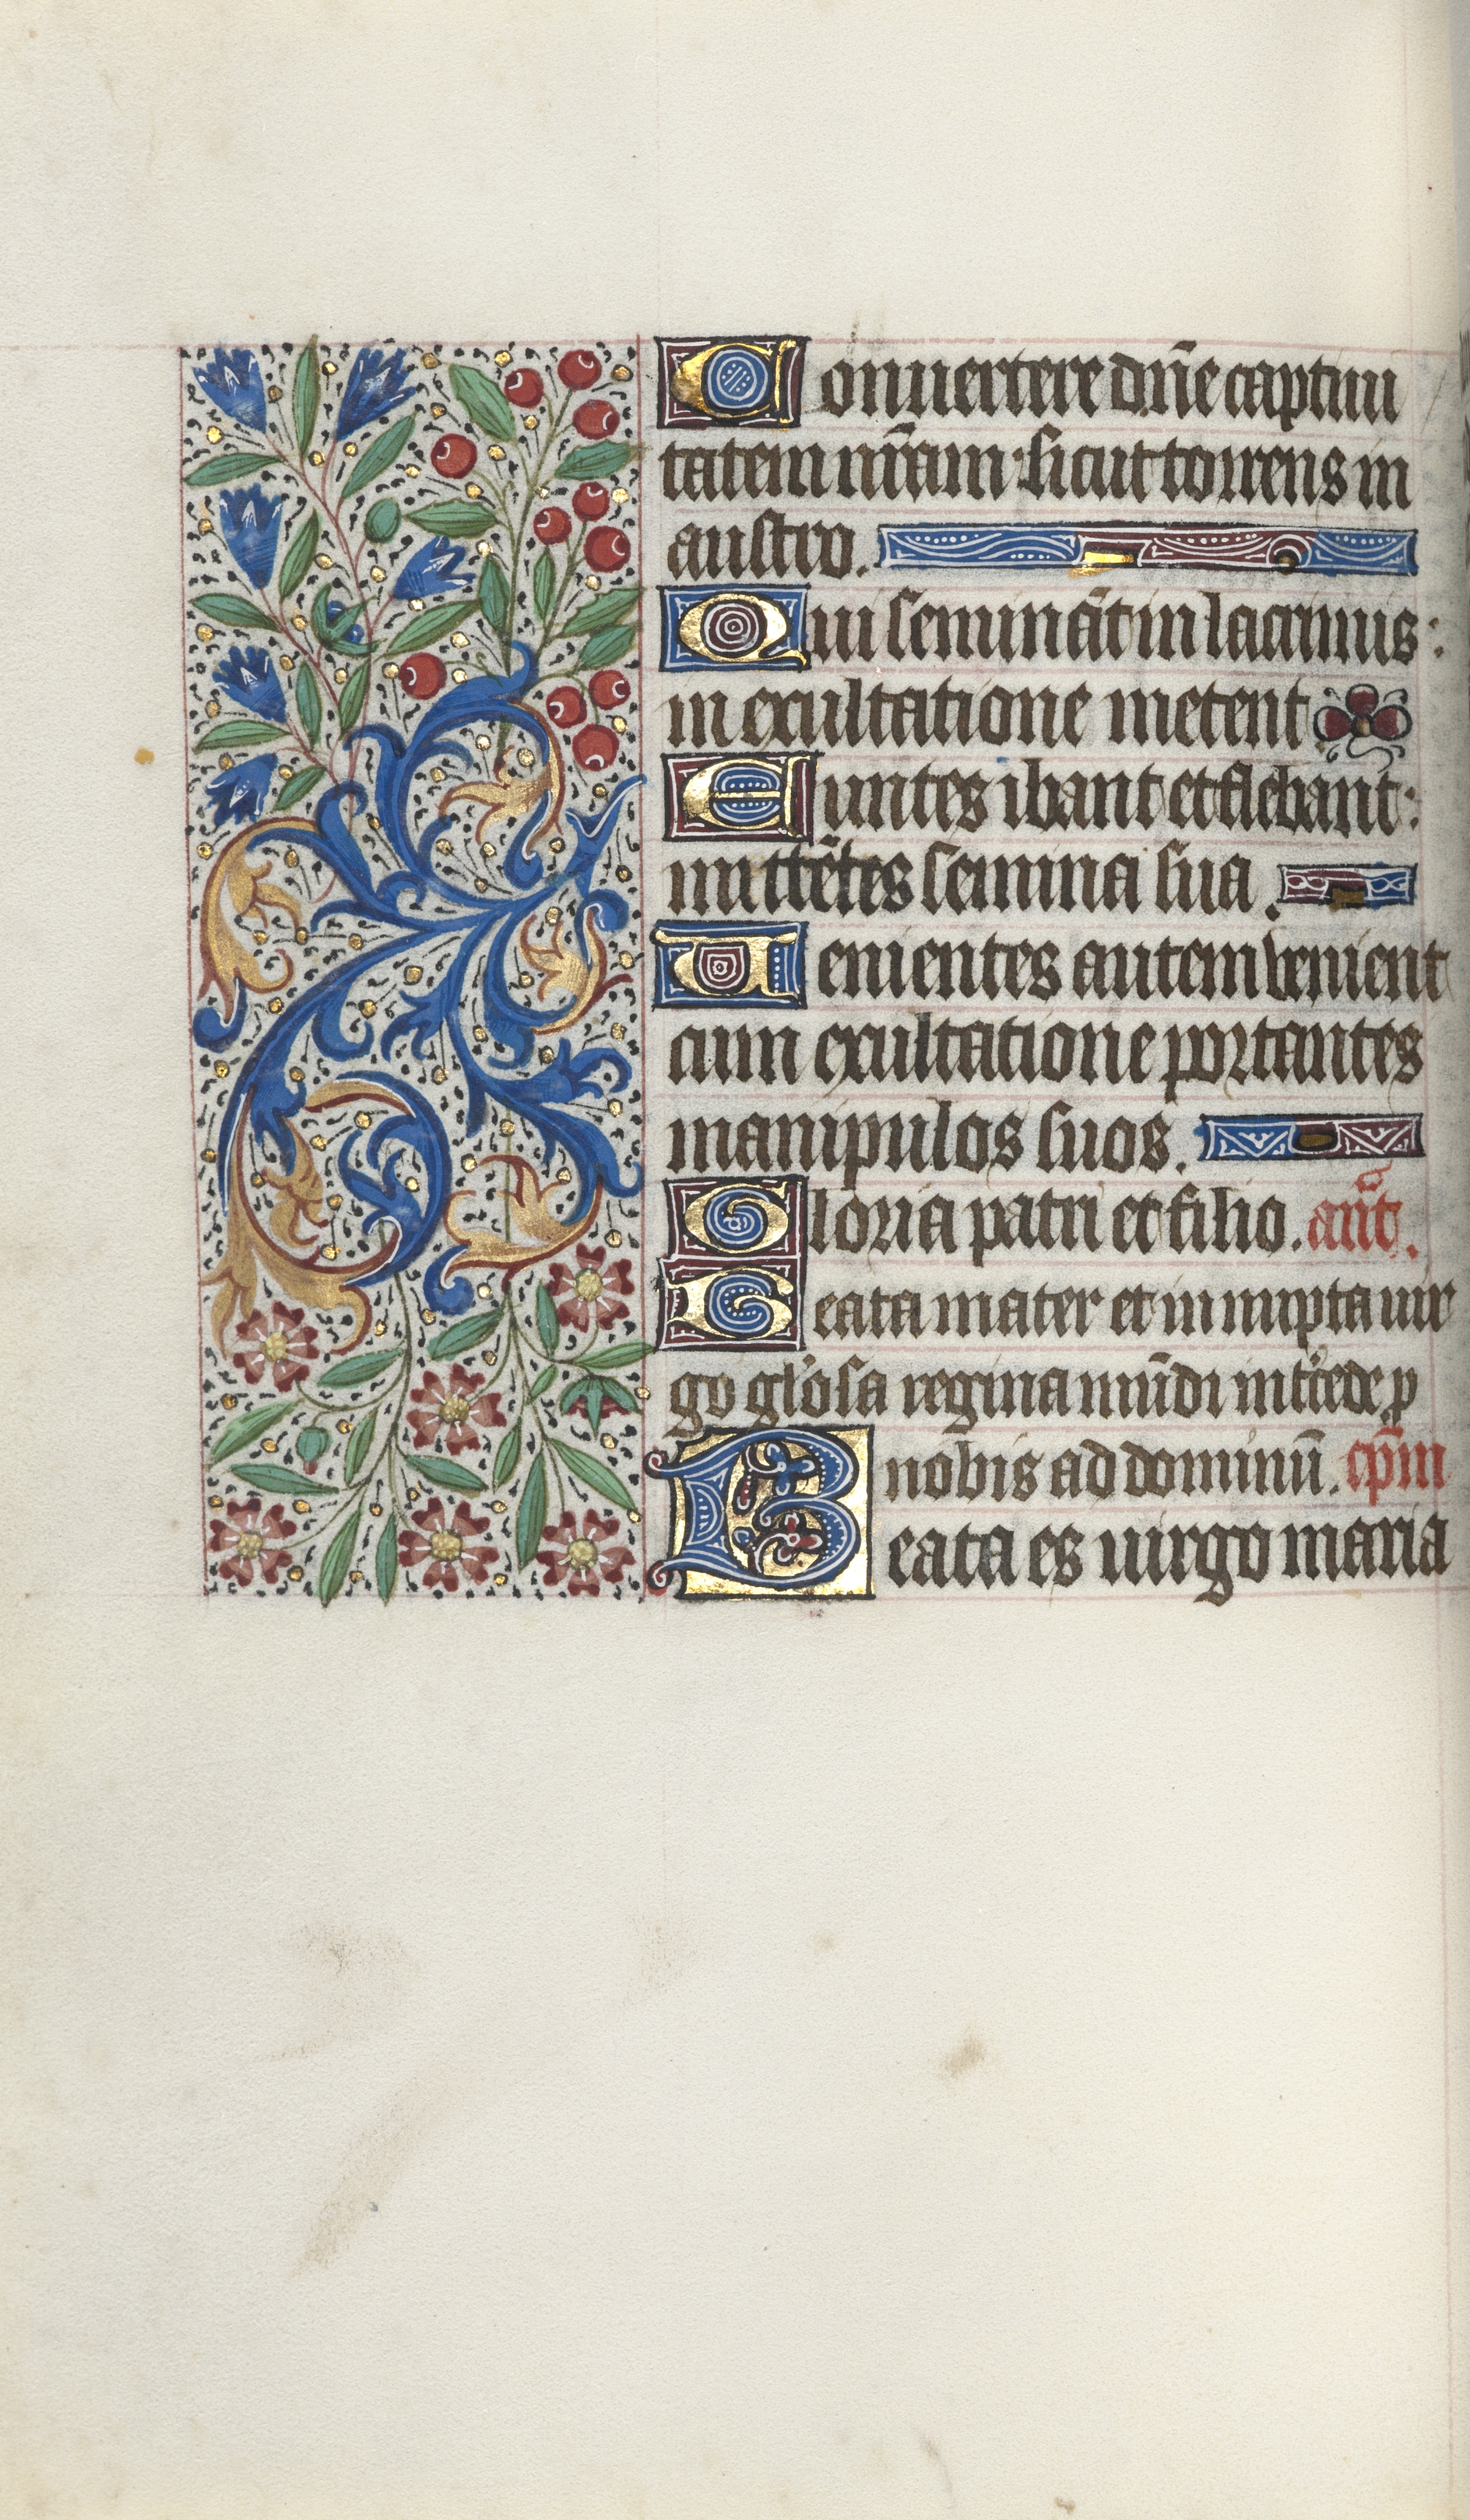 Conuertere dñe captiui
tatem nr̄am: sicut torrens in
austro.
Qui seminãt in lacrimis:
in exultatione metent
Euntes ibant et flebant:
mittẽtes semina sua.
Uenientes autem venient
cum exultatione portantes
manipulos suos.
Gloria patri et filio. añt.
Beata mater et innupta uir
go gl'osa regina mũdi int'cede p
nobis ad dominũ. cp̄m
Beata es uirgo maria